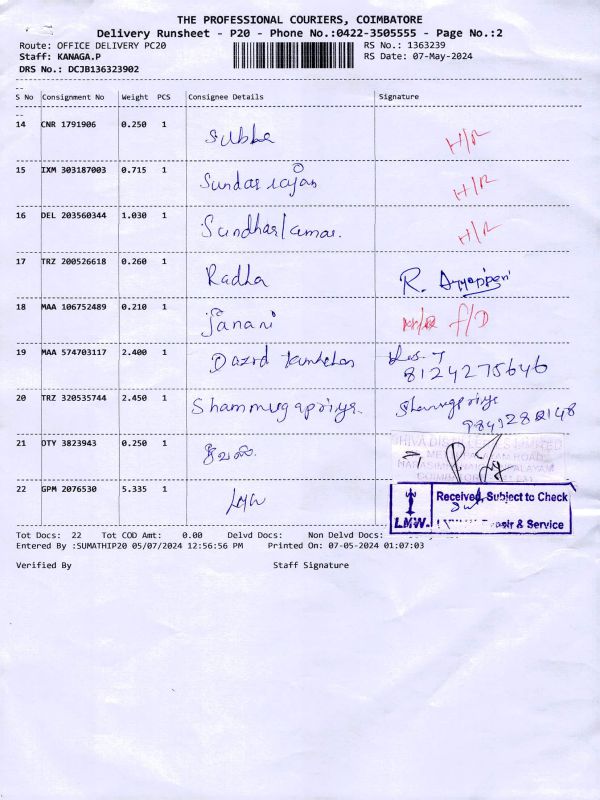 THE PROFESSIONAL COURIERS, COIMBATORE
Delivery Runsheet - P20 - Phone No.:0422-3505555 - Page No.:2
Route: OFFICE DELIVERY PC20 RS No.: 1363239
Staff: KANAGA.P RS Date: 07-May-2024
DRS No.: DCJB136323902
S No Consignment No Weight PCS Consignee Details Signature
14 CNR 1791906 0.250 1 Subba H/R
15 IXM 303187003 0.715 1 Sundar rajan H/R
16 DEL 203560344 1.030 1 Sundhar kumar. H/R
17 TRZ 200526618 0.260 1 Radha R.
18 MAA 106752489 0.210 1 Janani f/D
19 MAA 574703117 2.400 1 David
8124275646
20 TRZ 320535744 2.450 1 Shanmugapriya. Shanmugapriya
21 DTY 3823943 0.250 1
22 GPM 2076530 5.335 1 LMW
LMW. Received, Subject to Check
& Service
Tot Docs: 22 Tot COD Amt: 0.00 Delvd Docs: Non Delvd Docs:
Entered By :SUMATHIP20 05/07/2024 12:56:56 PM Printed On: 07-05-2024 01:07:03
Verified By Staff Signature